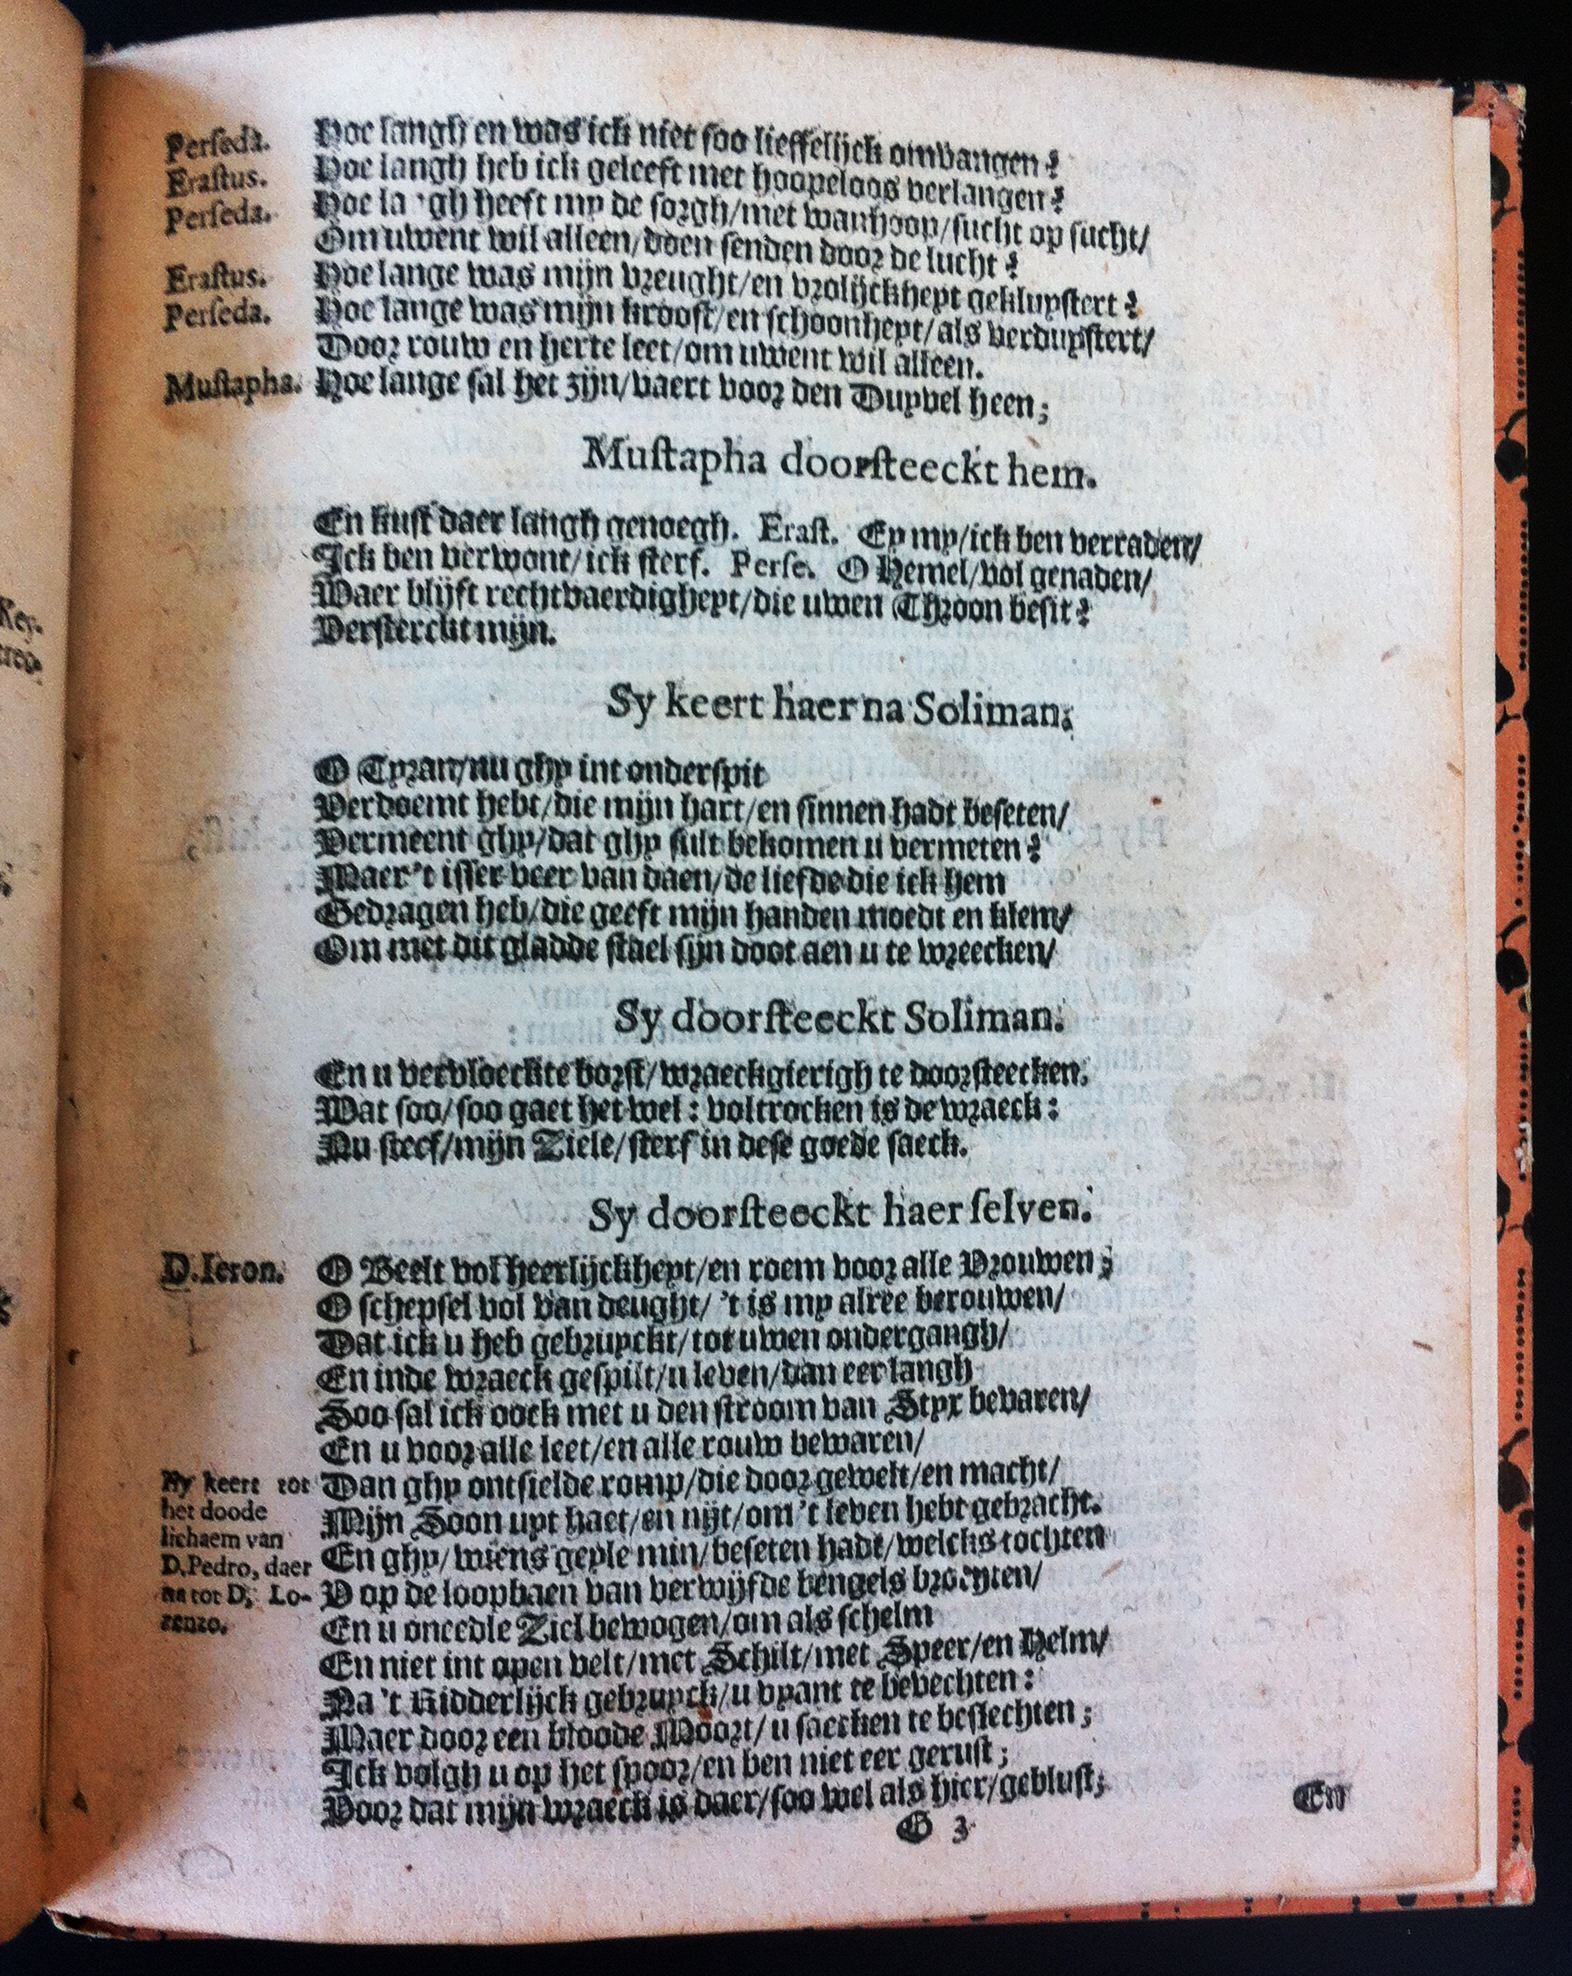 Perseda. Hoe langh en was ick niet soo lieffelijck omvangen?
Erastus. Hoe langh heb ick geleeft met hoopeloos verlangen?
Perseda. Hoe la gh heeft my de sorgh/met wanhoop/sucht op sucht/
Om uwent wil alleen/doen senden door de lucht?
Erastus. Hoe lange was mijn vreught/en vrolijckheyt gekluystert?
Perseda. Hoe lange was mijn kroost/en schoonheyt/als verduystert/
Door rouw en herte leet/om uwent wil alleen.
Mustapha. Hoe lange sal het zijn/vaert voor den Duyvel heen;
Mustapha doorsteeckt hem.
En kust daer langh genoegh. Erast. Ey my/ick ben verraden/
Ick ben verwont/ick sterf. Perse. O Hemel/vol genaden/
Waer blijft rechtvaerdigheyt/die uwen Throon besit?
Versterckt mijn.
Sy keert haer na Soliman.
O Tyran/nu ghy int onderspit
Verdoemt hebt/die mijn hart/en sinnen hadt beseten/
Vermeent ghy/dat ghy sult bekomen u vermeten?
Maer 't isser veer van daen/de liefde die ick hem
Gedragen heb/die geeft mijn handen moedt en klem/
Om met dit gladde stael sijn doot aen u te wreecken/
Sy doorsteeckt Soliman.
En u vervloeckte borst/wraeckgierigh te doorsteecken.
Wat soo/soo gaet het wel: voltrocken is de wraeck:
Nu sterf/mijn Ziele/sterf in dese goede saeck.
Sy doorsteeckt haer selven.
D.Ieron. O Beelt vol heerlijckheyt/en roem voor alle Vrouwen;
O schepsel vol van deught/ 't is my alree berouwen/
Dat ick u heb gebruyckt/tot uwen ondergangh/
En inde wraeck gespilt/u leven/van eer langh
Soo sal ick oock met u den stroom van Styx bevaren/
En u voor alle leet/en alle rouw bewaren/
Hy keert tot het doode lichaem van D.Pedro, daer na tot D. Lorenzo. Dan ghy ontsielde romp/die door gewelt/en macht/
Mijn Soon uyt haet/en nijt/om 't leven hebt gebracht.
En ghy/wiens geyle min/beseten hadt/welcks tochten
V op de loopbaen van verwijfde bengels brochten/
En u oneedle Ziel bewogen/om als schelm
En niet int open velt/met Schilt/met Speer/en Helm/
Na 't Ridderlijck gebruyck/u vyant te bevechten:
Maer door een bloode Moort/u saecken te beslechten;
Ick volgh u op het spoor/en ben niet eer gerust;
Voor dat mijn wraeck is daer/soo wel als hier/geblust;
G 3
En